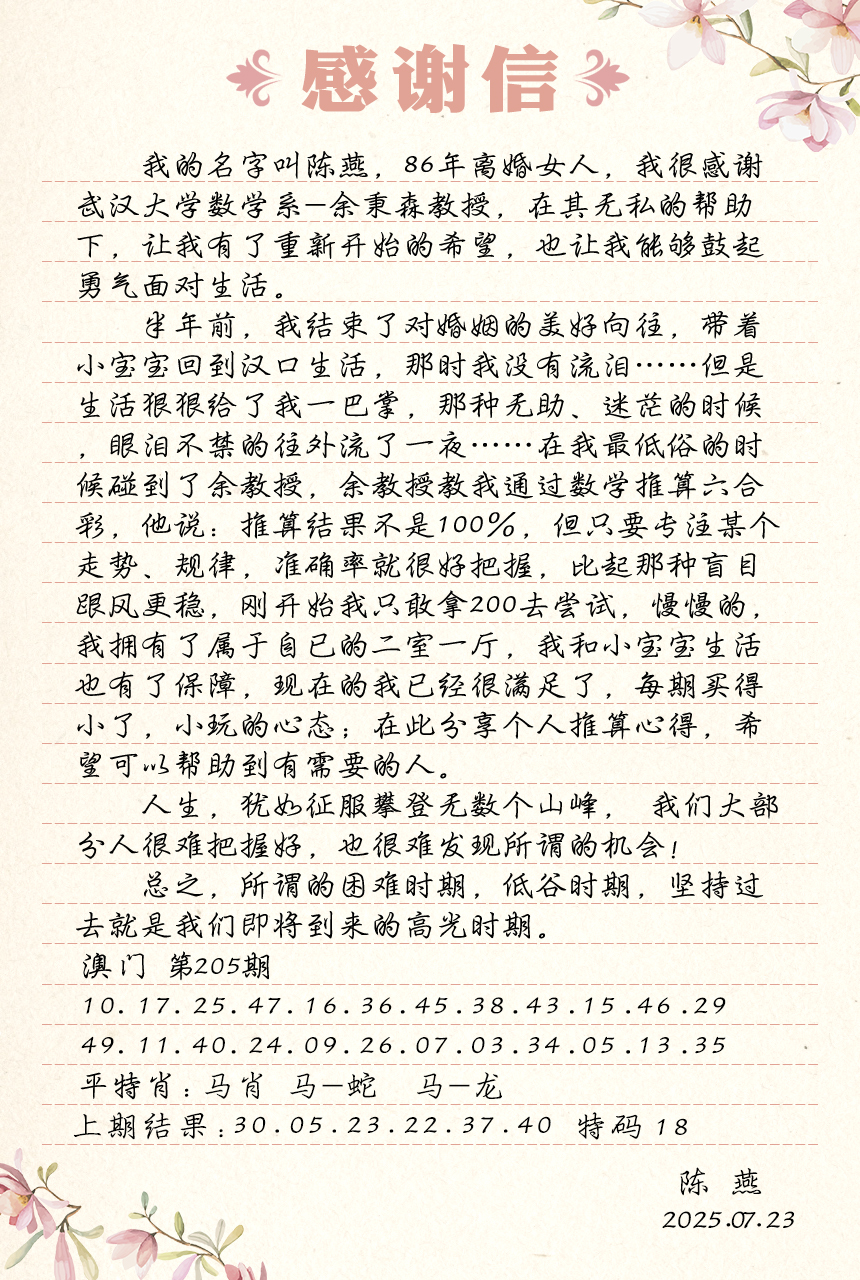 感谢信
我的名字叫陈燕，86年离婚女人，我很感谢
武汉大学数学系—余秉森教授，在其无私的帮助
下，让我有了重新开始的希望，也让我能够鼓起
勇气面对生活。
半年前，我结束了对婚姻的美好向往，带着
小宝宝回到汉口生活，那时我没有流泪……但是
生活狠狠给了我一巴掌，那种无助、迷茫的时候
，眼泪不禁的往外流了一夜……在我最低俗的时
候碰到了余教授，余教授教我通过数学推算六合
彩，他说：推算结果不是100%，但只要专注某个
走势、规律，准确率就很好把握，比起那种盲目
跟风更稳，刚开始我只敢拿200去尝试，慢慢的，
我拥有了属于自已的二室一厅，我和小宝宝生活
也有了保障，现在的我已经很满足了，每期买得
小了，小玩的心态；在此分享个人推算心得，希
望可以帮助到有需要的人。
人生，犹如征服攀登无数个山峰， 我们大部
分人很难把握好，也很难发现所谓的机会！
总之，所谓的困难时期，低谷时期，坚持过
去就是我们即将到来的高光时期。
澳门 第205期
10.17.25.47.16.36.45.38.43.15.46.29
49.11.40.24.09.26.07.03.34.05.13.35
平特肖：马肖 马—蛇 马—龙
上期结果：30.05.23.22.37.40 特码18
陈 燕
2025.07.23